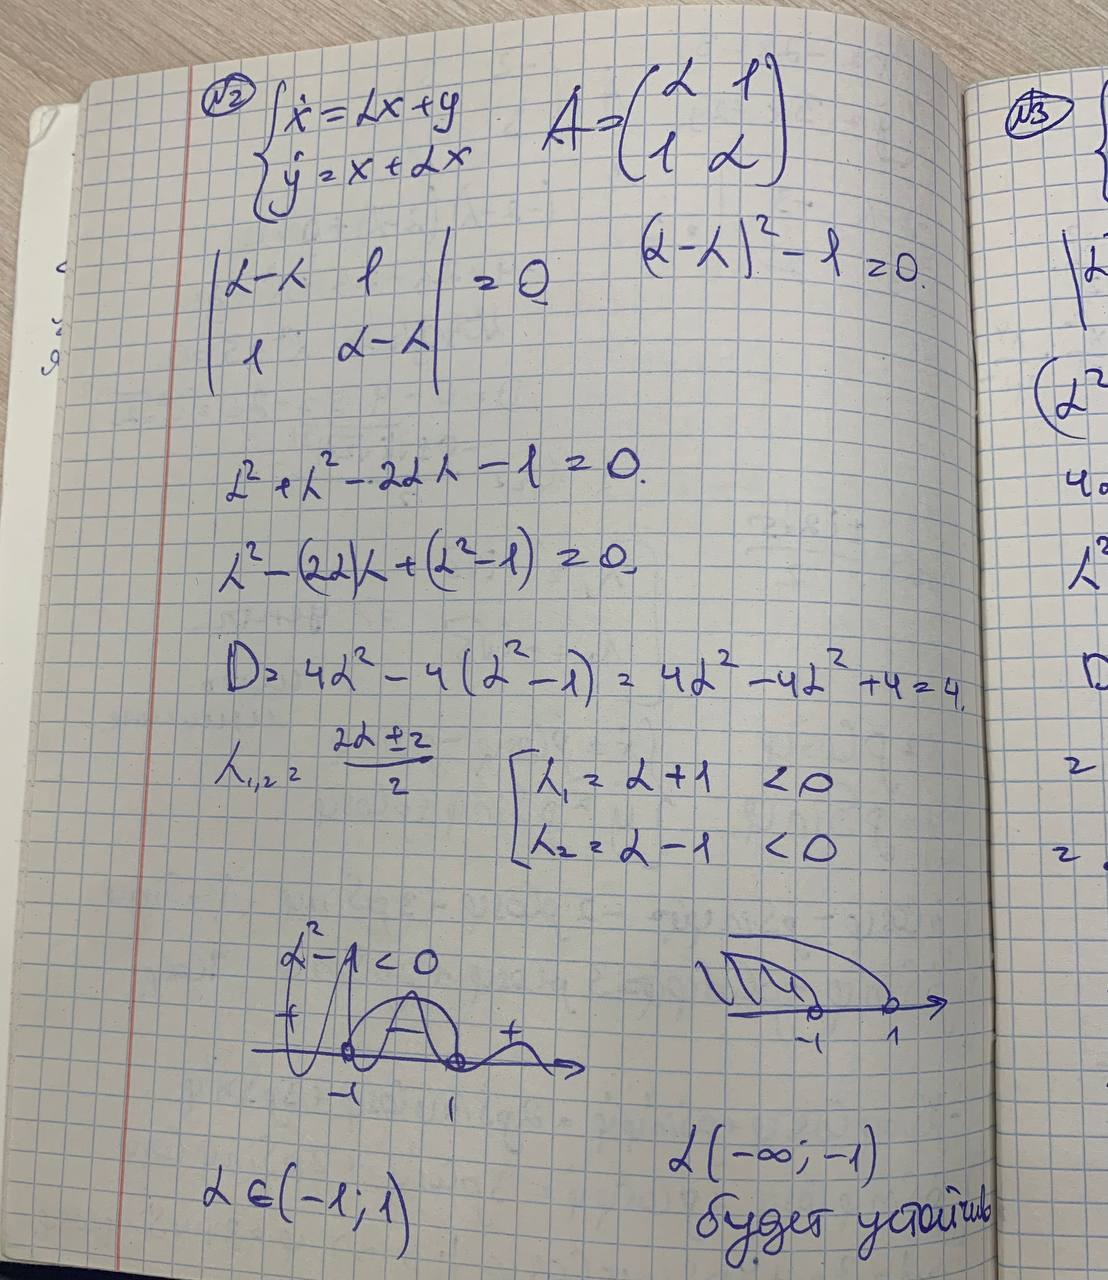 №2 { ẋ = αx + y
ẏ = x + αx
A = ( α 1
1 α )
| α-λ 1 | = 0
| 1 α-λ |
(α-λ)² - 1 = 0.
α² + λ² - 2αλ - 1 = 0.
λ² - (2α)λ + (α² - 1) = 0.
D = 4α² - 4(α² - 1) = 4α² - 4α² + 4 = 4.
λ₁,₂ = (2α ± 2)/2
[ λ₁ = α + 1 < 0
λ₂ = α - 1 < 0
α² - 1 < 0
+ - +
-1 1
α ∈ (-1; 1)
-1 1
α (-∞; -1)
будет устойчив
№3